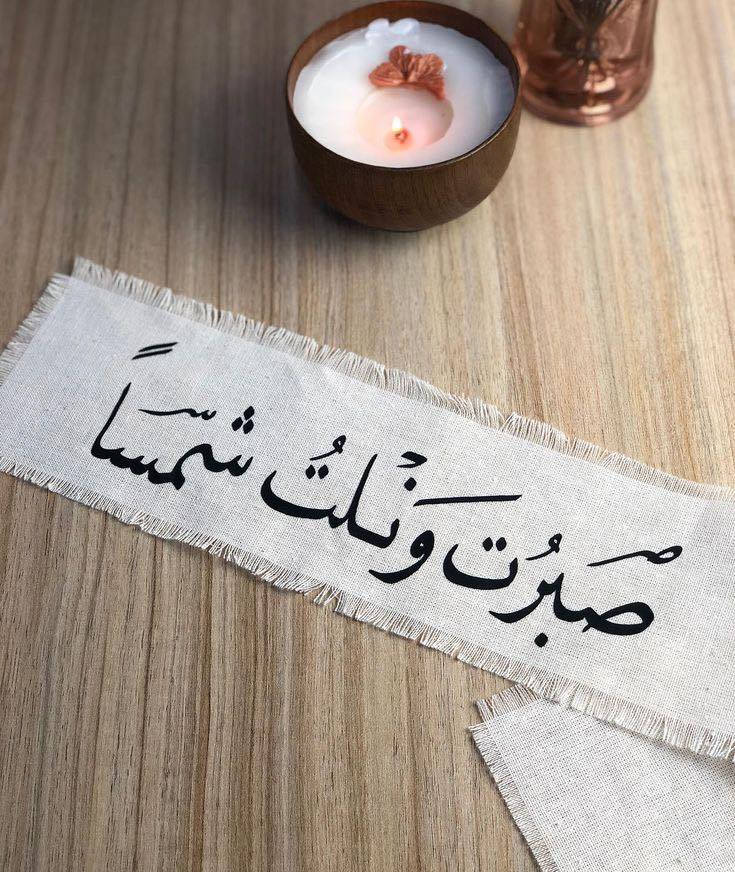 صبرُت ونلتُ شمساً